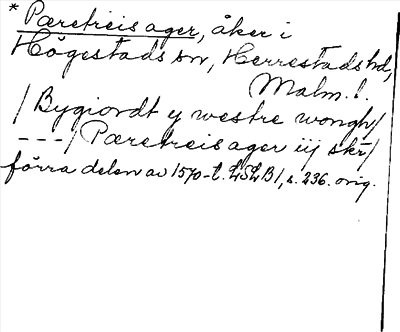 * Pæretreis ager, åker i
Högestads sn, Herrestads hd,
Malm. l.
/Bygiordt y westre wongh/
---/Pæretreis ager iij skr/
förra delen av 1570-t. LSLB 1, s. 236. orig.